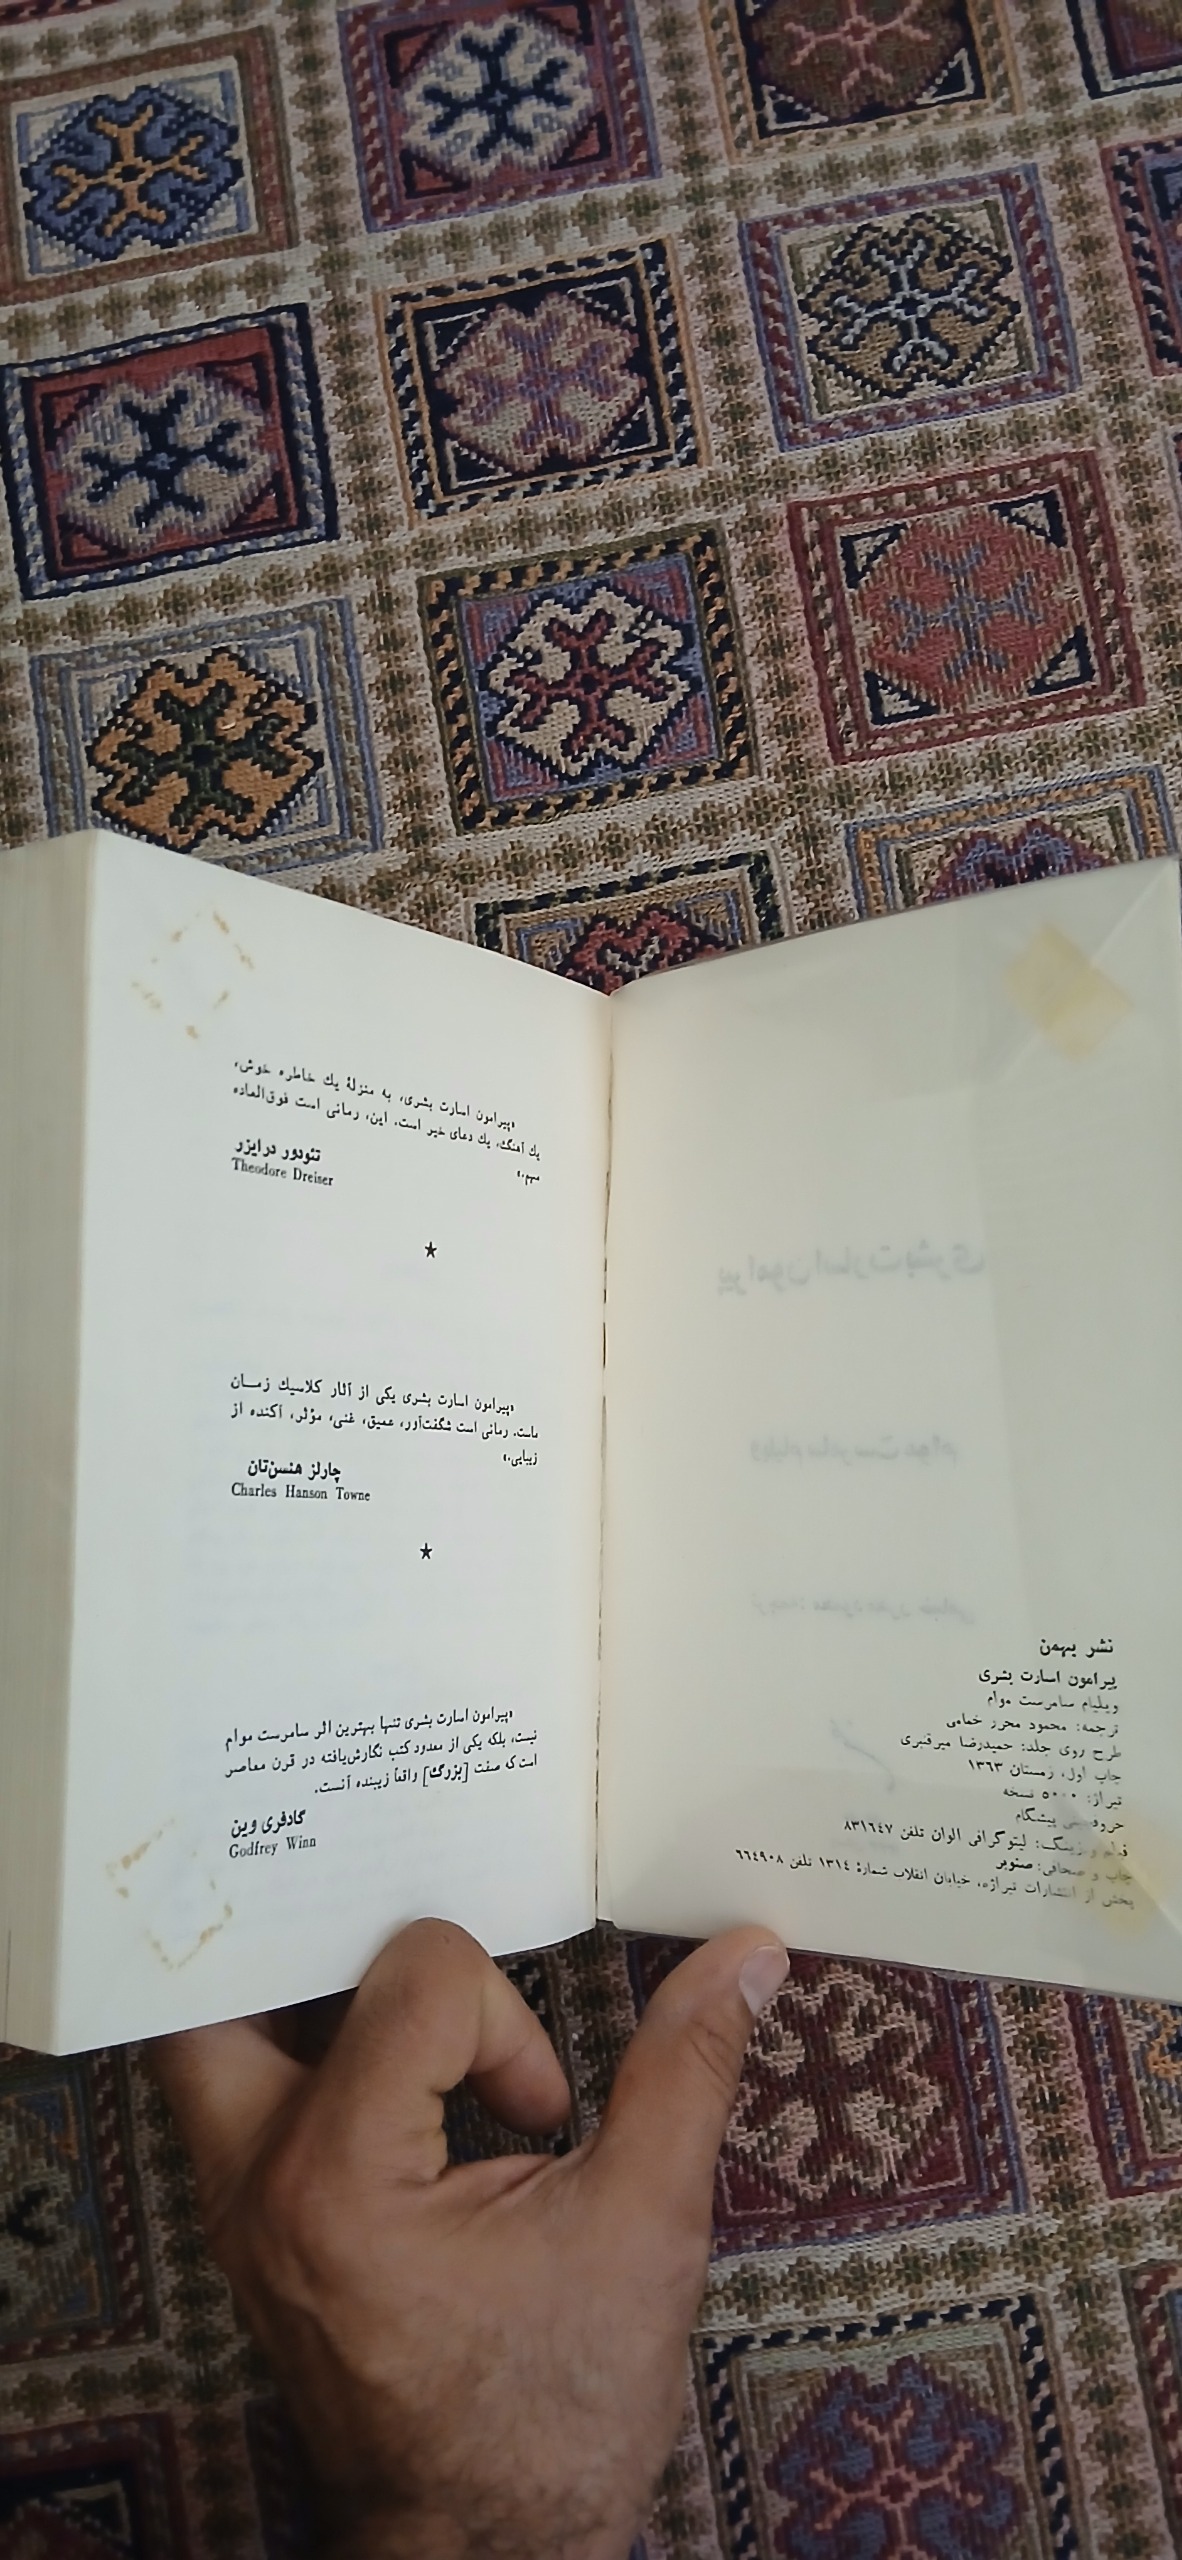 نشر بهمن
پیرامون اسارت بشری
ویلیام سامرست موام
ترجمه: محمود محرر خمامی
طرح روی جلد: حمیدرضا میرقنبری
چاپ اول، زمستان ۱۳۶۳
تیراژ: ۵۰۰۰ نسخه
پیشگام
فیلم و زینگ: لیتوگرافی الوان تلفن ۸۳۱٦٤۷
چاپ و صحافی: صنوبر
پخش از انتشارات تیراژه، خیابان انقلاب شمارهٔ ۱۳۱٤ تلفن ٦٦٤۹۰۸
«پیرامون اسارت بشری، به منزلهٔ یك خاطره خوش،
یك آهنگ، یك دعای خیر است. این، رمانی است فوق‌العاده
مهم.»
تئودور درایزر
Theodore Dreiser
★
«پیرامون اسارت بشری یکی از آثار کلاسیك زمــان
ماست. رمانی است شگفت‌آور، عمیق، غنی، مؤثر، آکنده از
زیبایی.»
چارلز هنسن‌تان
Charles Hanson Towne
★
«پیرامون اسارت بشری تنها بهترین اثر سامرست موام
نیست، بلکه یکی از معدود کتب نگارش‌یافته در قرن معاصر
است که صفت [بزرگ] واقعاً زیبنده آنست.
گادفری وین
Godfrey Winn